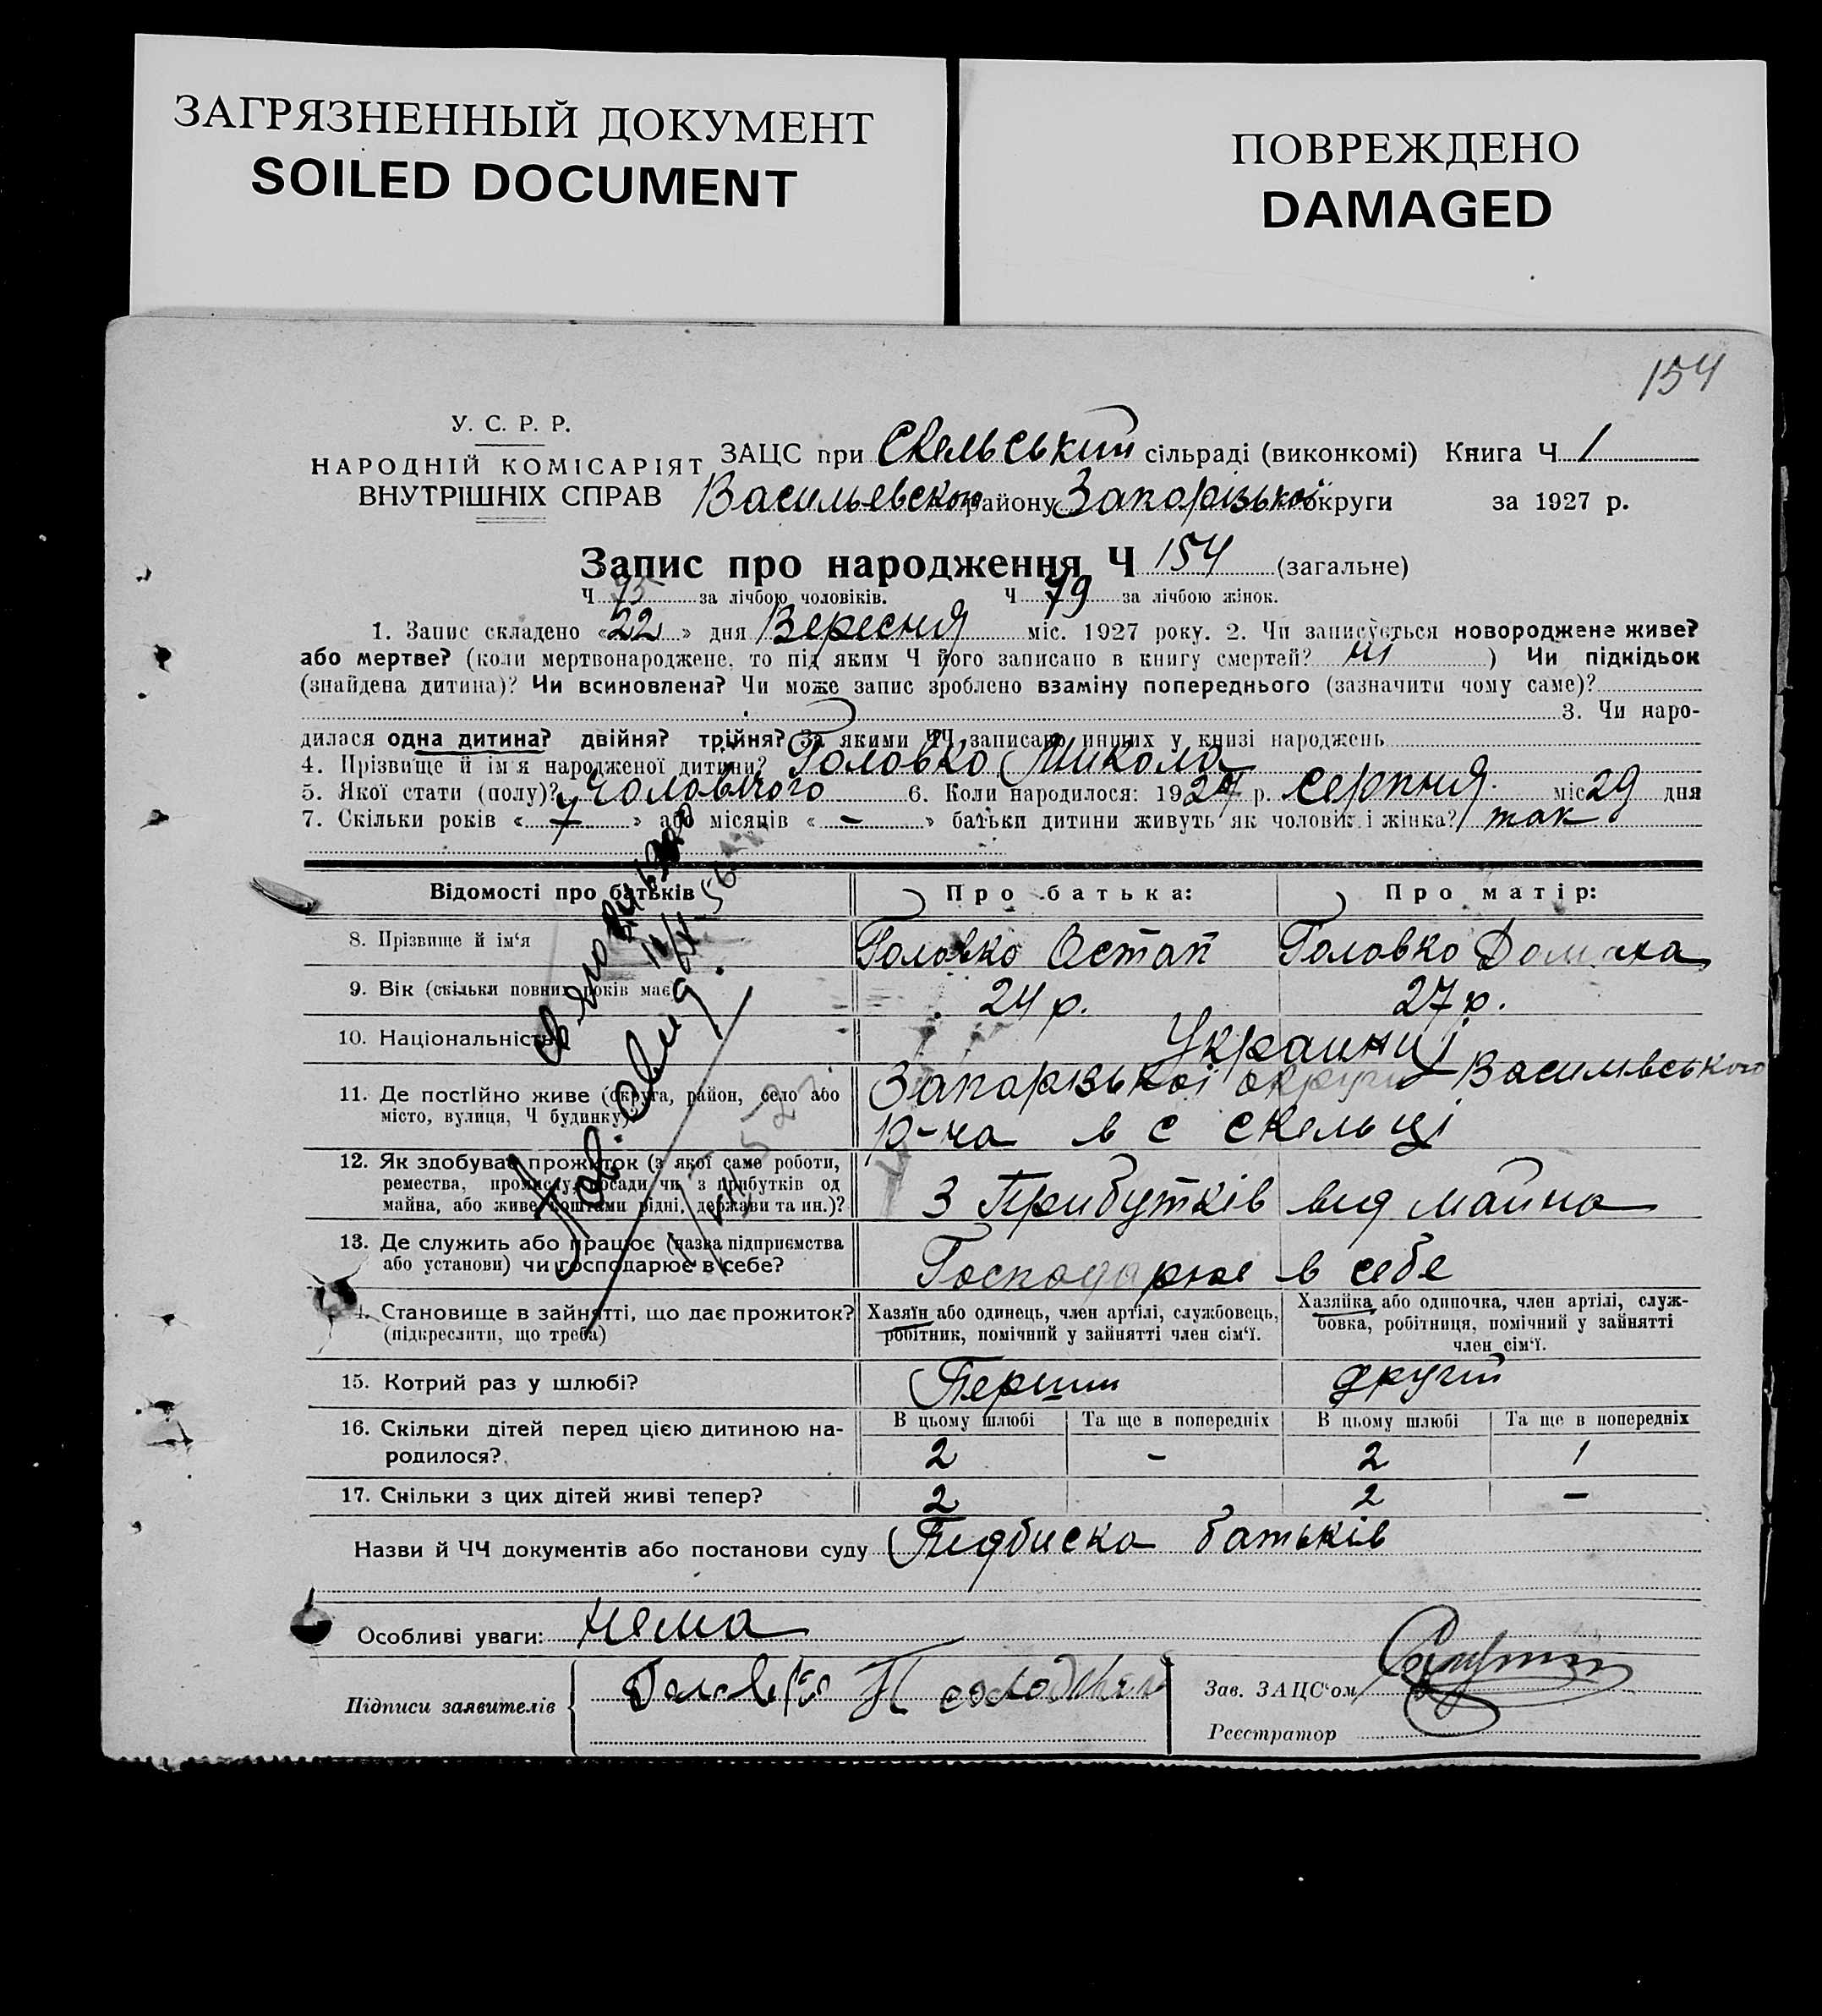 ЗАГРЯЗНЕННЫЙ ДОКУМЕНТ
SOILED DOCUMENT
ПОВРЕЖДЕНО
DAMAGED
154
У. С. Р. Р.
НАРОДНІЙ КОМІСАРІЯТ
ВНУТРІШНІХ СПРАВ
ЗАЦС при Скельський сільраді (виконкомі) Книга Ч 1
Васильевского району Запорізької округи за 1927 р.
Запис про народження Ч 154 (загальне)
Ч 75 за лічбою чоловіків. Ч 79 за лічбою жінок.
1. Запис складено «22» дня Вересня міс. 1927 року. 2. Чи записується новороджене живе?
або мертве? (коли мертвонароджене, то під яким Ч його записано в книгу смертей? ні ) Чи підкідьок
(знайдена дитина)? Чи всиновлена? Чи може запис зроблено взаміну попереднього (зазначити чому саме)?
3. Чи наро-
дилася одна дитина? двійня? трійня? За якими ЧЧ записано инших у книзі народжень
4. Прізвище й ім'я народженої дитини? Головко Микола
5. Якої стати (полу)? Чоловічого 6. Коли народилося: 1927 р. серпня міс 29 дня
7. Скільки років « 7 » або місяців « - » батьки дитини живуть як чоловік і жінка? так
Відомості про батьків Про батька: Про матір:
8. Прізвище й ім'я Головко Остап Головко
9. Вік (скільки повних років має) 24 р. 27 р.
10. Національність Украинці
11. Де постійно живе (округа, район, село або
місто, вулиця, Ч будинку)?
Запорізької округи Василівського
р-на в с Скельці
12. Як здобуває прожиток (з якої саме роботи,
ремества, промислу, посади чи з прибутків од
майна, або живе коштами рідні, держави та ин.)?
З Прибутків вид майна
13. Де служить або працює (назва підприємства
або установи) чи господарює в себе?
Господарює в себе
14. Становище в зайнятті, що дає прожиток?
(підкреслити, що треба)
Хазяїн або одинець, член артілі, службовець,
робітник, помічний у зайнятті член сім'ї.
Хазяйка або одиночка, член артілі, служ-
бовка, робітниця, помічний у зайнятті
член сім'ї.
15. Котрий раз у шлюбі? Перший другий
16. Скільки дітей перед цією дитиною на-
родилося?
В цьому шлюбі Та ще в попередніх В цьому шлюбі Та ще в попередніх
2 - 2 1
17. Скільки з цих дітей живі тепер? 2 2 -
Назви й ЧЧ документів або постанови суду Пидбиска батьків
Особливі уваги: нема
Підписи заявителів Головко
Зав. ЗАЦС'ом
Реєстратор